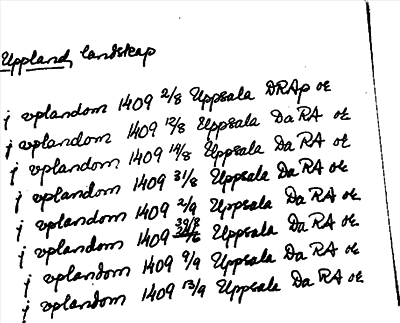 Uppland, landskap
j vplandom 1409 2/8 Uppsala DRAp or
j vplandom 1409 12/8 Uppsala Da RA or
j vplandom 1409 14/8 Uppsala Da RA or
j vplandom 1409 31/8 Uppsala Da RA or
j vplandom 1409 2/9 Uppsala Da RA or
j vplandom 1409 Uppsala Da RA or
j vplandom 1409 9/9 Uppsala Da RA or
j vplandom 1409 13/9 Uppsala Da RA or